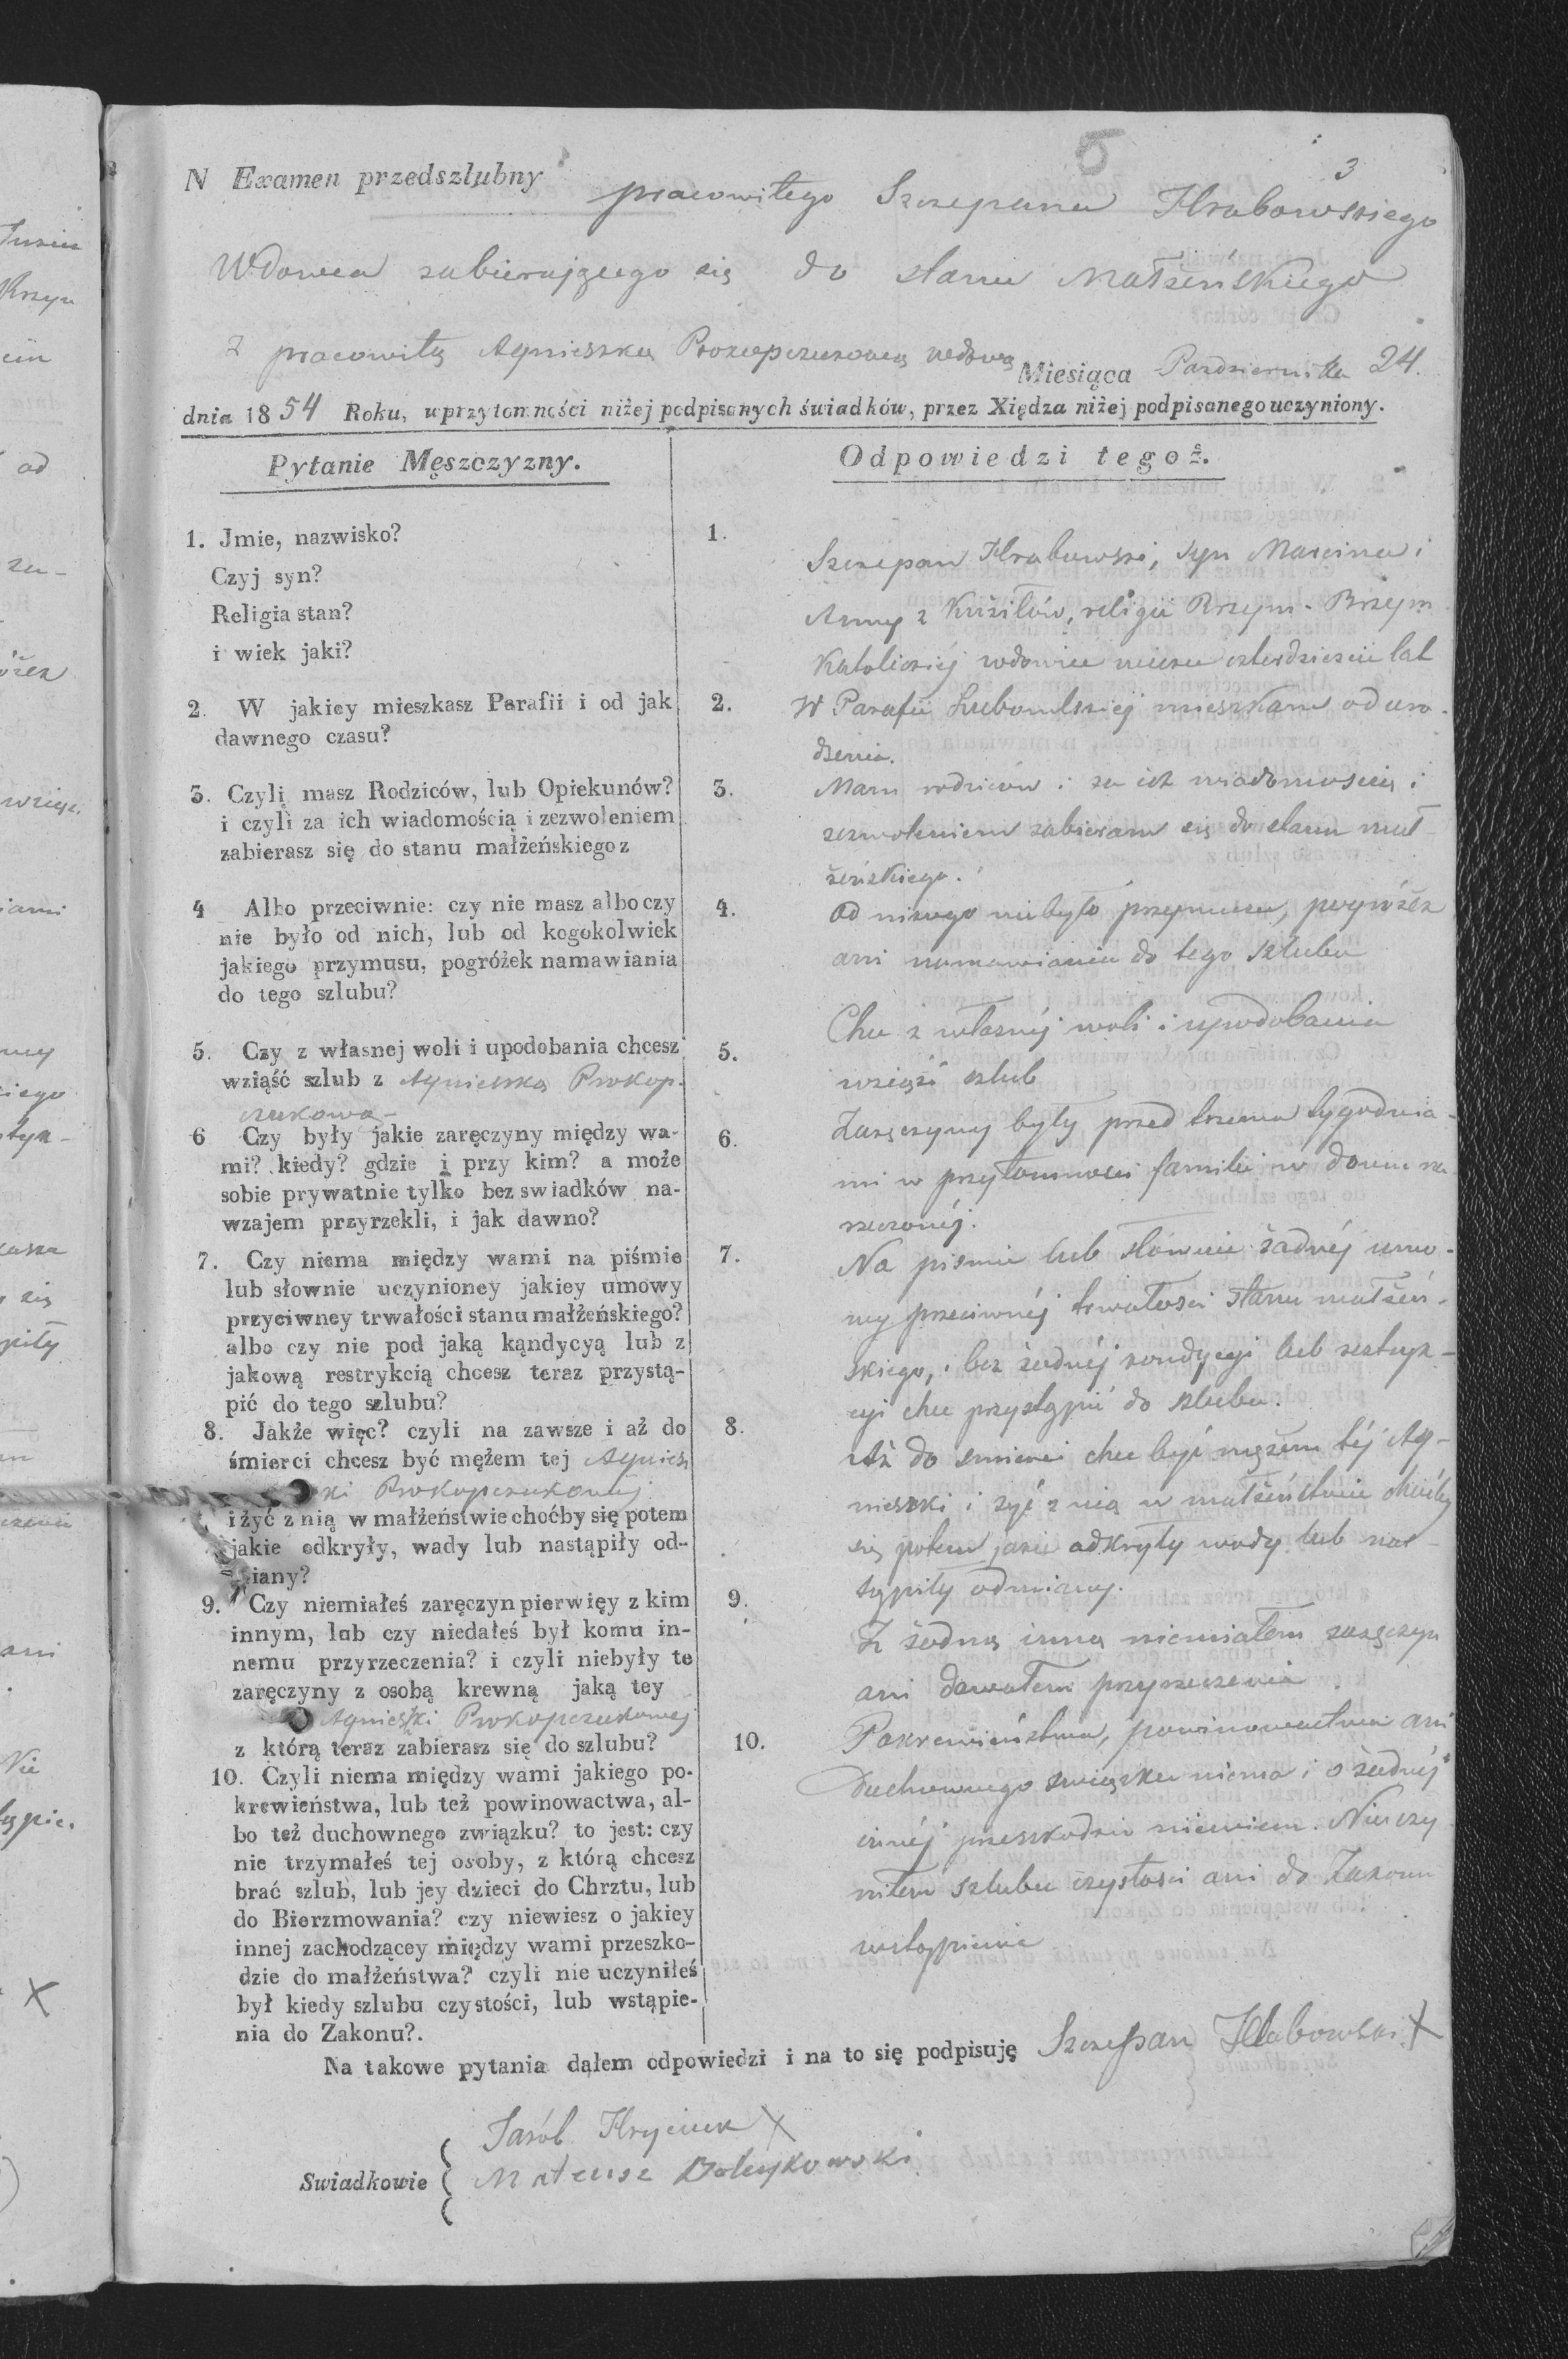 5
3
N Examen przedszlubny pracowitego Szczepana Hrabowskiego
Wdowca zabierającego się do stanu Małżeńskiego
z pracowitą Agnieszką Prokopczukową wdową Miesiąca Pazdziernika 24.
dnia 1854 Roku, w przytomności niżej podpisanych świadków, przez Xiędza niżej podpisanego uczyniony.
Pytanie Męszczyzny.
1. Jmie, nazwisko?
Czyj syn?
Religia stan?
i wiek jaki?
2. W jakiey mieszkasz Parafii i od jak
dawnego czasu?
3. Czylį masz Rodziców, lub Opiekunów?
i czyli za ich wiadomością i zezwoleniem
zabierasz się do stanu małżeńskiego z
4 Albo przeciwnie: czy nie masz albo czy
nie było od nich, lub od kogokolwiek
jakiego przymusu, pogróżek namawiania
do tego szlubu?
5. Czy z własnej woli i upodobania chcesz
wziąść szlub z Agnieszką Prokop-
czukową
6 Czy były jakie zaręczyny między wa-
mi? kiedy? gdzie i przy kim? a może
sobie prywatnie tylko bez swiadków na-
wzajem przyrzekli, i jak dawno?
7. Czy niema między wami na piśmie
lub słownie uczynioney jakiey umowy
przyciwney trwałości stanu małżeńskiego?
albo czy nie pod jaką kąndycyą lub z
jakową restrykcią chcesz teraz przystą-
pić do tego szlubu?
8. Jakże więc? czyli na zawsze i aż do
śmierci chcesz być mężem tej Agniesz
ki Prokopczukowej
i żyć z nią w małżeństwie choćby się potem
jakie odkryły, wady lub nastąpiły od-
iany?
9. Czy niemiałeś zaręczyn pierwięy z kim
innym, lub czy niedałeś był komu in-
nemu przyrzeczenia? i czyli niebyły te
zaręczyny z osobą krewną jaką tey
Agnieszki Prokopczukowej
z którą teraz zabierasz się do szlubu?
10. Czyli niema między wami jakiego po-
krewieństwa, lub też powinowactwa, al-
bo też duchownego związku? to jest: czy
nie trzymałeś tej osoby, z którą chcesz
brać szlub, lub jey dzieci do Chrztu, lub
do Bierzmowania? czy niewiesz o jakiey
innej zachodzącey między wami przeszko-
dzie do małżeństwa? czyli nie uczyniłeś
był kiedy szlubu czystości, lub wstąpie-
nia do Zakonu?.
Odpowiedzi tegoż.
1. Szczepan Hrabowski, syn Marcina i
Anny z Kuziłów, religii Rzym-
Katolickiéj wdowiec wieku czterdzieście lat
2. W Parafii Lubomlskiej mieszkam od uro-
dzenia.
3. Mam rodziców i za ich wiadomoscią i
zezwoleniem zabieram się do stanu mał-
żeńskiego.
4. Od nikogo niebyło przymusu, pogróżek
ani namawiania do tego szlubu
5. Chce z własnéj woli i upodobania
wziąść szlub
6. Zaręczyny były przed trzema tygodnia-
mi w przytomnosci familii w domu na
rzeczonéj.
7. Na pismie lub słownie żadnéj umo-
wy przeciwnéj trwałosci stanu małżeń-
skiego, i bez żadnéj kondycyi lub restryk-
cyi chce przystąpić do szlubu.
8. Aż do smierci chce być mężem téj Ag-
nieszki i żyć z nią w małżeństwie choćby
się potem jakie odkryły wady lub nas-
tąpiły odmiany.
9. Z żadną inną niemiałem zaręczyn
ani dawałem przyrzeczenia
10. Pokrewieństwa, powinowactwa ani
duchownego związku niema i o żadnéj
innéj przeszkodzie niewiem. Nieuczy
niłem szlubu czystosci ani do Zakonu
wstąpienia
Na takowe pytania dąłem odpowiedzi i na to się podpisuję Szczepan Hrabowski X
Swiadkowie
Jakób Hryciuk X
Mateusz